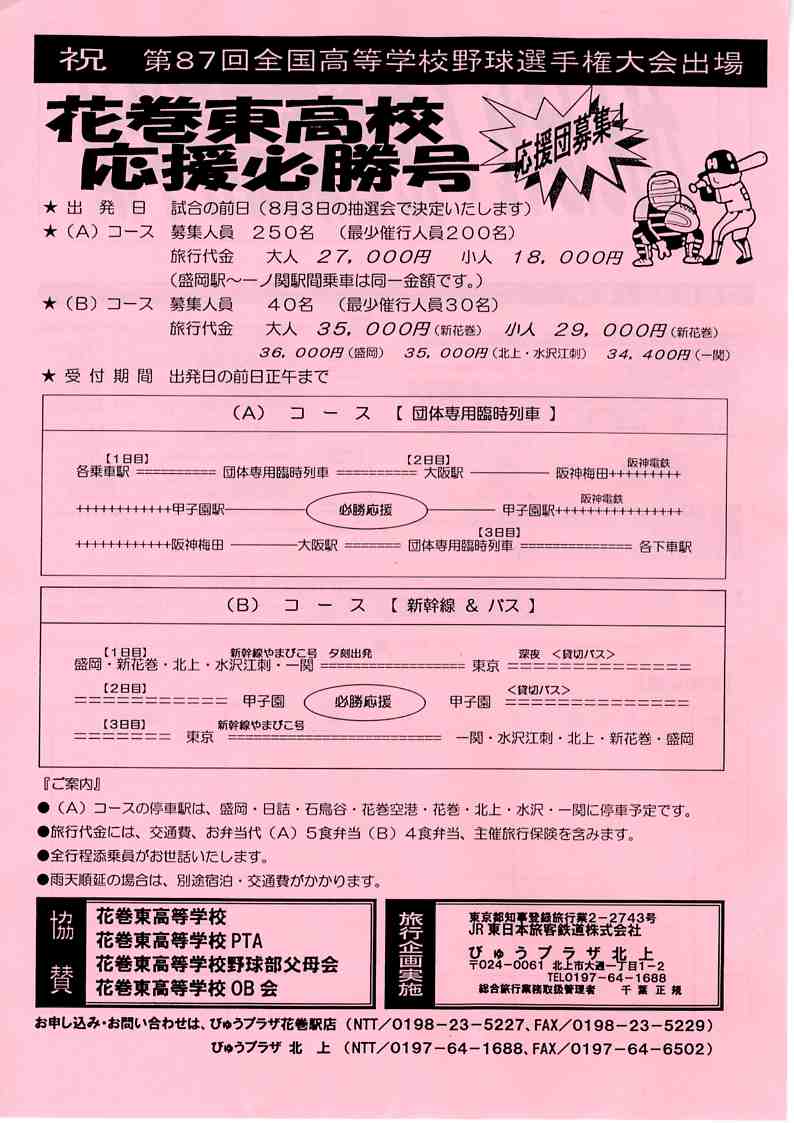 祝 第87回全国高等学校野球選手権大会出場
花巻東高校
応援必勝号
応援団募集!
★ 出 発 日 試合の前日(8月3日の抽選会で決定いたします)
★(A)コース 募集人員 250名 (最少催行人員200名)
旅行代金 大人 27,000円 小人 18,000円
(盛岡駅～一ノ関駅間乗車は同一金額です。)
★(B)コース 募集人員 40名 (最少催行人員30名)
旅行代金 大人 35,000円(新花巻) 小人 29,000円(新花巻)
36,000円(盛岡) 35,000円(北上・水沢江刺) 34,400円(一関)
★ 受 付 期 間 出発日の前日正午まで
(A) コ ー ス 【 団体専用臨時列車 】
【1日目】 【2日目】 阪神電鉄
各乗車駅 ========== 団体専用臨時列車 ========== 大阪駅 ────── 阪神梅田+++++++++
阪神電鉄
++++++++++++甲子園駅────── 必勝応援 ────── 甲子園駅++++++++++++++++
【3日目】
++++++++++++阪神梅田 ──────大阪駅 ======= 団体専用臨時列車 ============== 各下車駅
(B) コ ー ス 【 新幹線 & バス 】
【1日目】 新幹線やまびこ号 夕刻出発 深夜 <貸切バス>
盛岡・新花巻・北上・水沢江刺・一関 ====================== 東京 ===============
【2日目】 <貸切バス>
=========== 甲子園 必勝応援 甲子園 ===============
【3日目】 新幹線やまびこ号
======= 東京 ========================== 一関・水沢江刺・北上・新花巻・盛岡
『ご案内』
●(A)コースの停車駅は、盛岡・日詰・石鳥谷・花巻空港・花巻・北上・水沢・一関に停車予定です。
●旅行代金には、交通費、お弁当代(A)5食弁当(B)4食弁当、主催旅行保険を含みます。
●全行程添乗員がお世話いたします。
●雨天順延の場合は、別途宿泊・交通費がかかります。
協賛
花巻東高等学校
花巻東高等学校PTA
花巻東高等学校野球部父母会
花巻東高等学校OB会
旅行企画実施
東京都知事登録旅行業2-2743号
JR東日本旅客鉄道株式会社
びゅうプラザ北上
〒024-0061 北上市大通一丁目1-2
TEL0197-64-1688
総合旅行業務取扱管理者 千 葉 正 規
お申し込み・お問い合わせは、びゅうプラザ花巻駅店(NTT/0198-23-5227、FAX/0198-23-5229)
びゅうプラザ 北 上 (NTT/0197-64-1688、FAX/0197-64-6502)